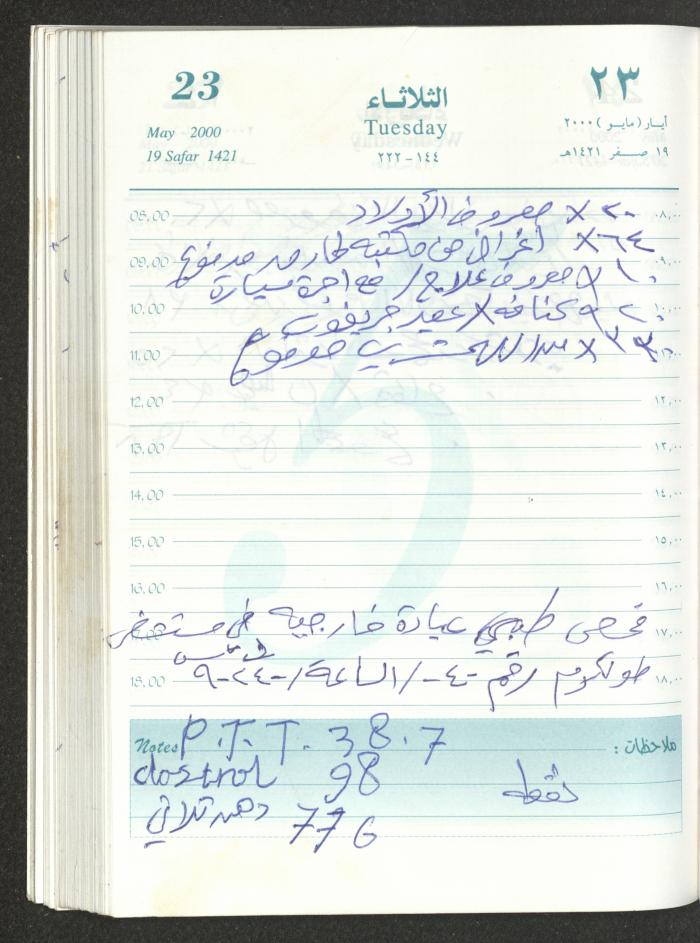 23
الثلاثاء
٢٣
May 2000
Tuesday
أيار (مايو) ٢٠٠٠
19 Safar 1421
١٤٤-٢٢٢
١٩ صفر ١٤٢١هـ
08.00 ٢٠ X مصروف الأولاد ٠٨,٠٠
٦٤ X أغراض من مكتبة مدفوع
09.00 ٠٩,٠٠
١٠ X مصروف علاج / مع اجرة سيارة
10.00 ٢٠ كنافه X عيد ١٠,٠٠
11.00 ٣٣٠ X مدفوع ١١,٠٠
12.00 ١٢,٠٠
13.00 ١٣,٠٠
14.00 ١٤,٠٠
15.00 ١٥,٠٠
16.00 ١٦,٠٠
فحص طبي عيادة خارجية في مستشفى
17.00 ١٧,٠٠
18.00 طولكرم رقم -٤٠- / الساعة / ١٨,٠٠
Notes P.T.T. 38.7 ملاحظات :
98 نقطه
776